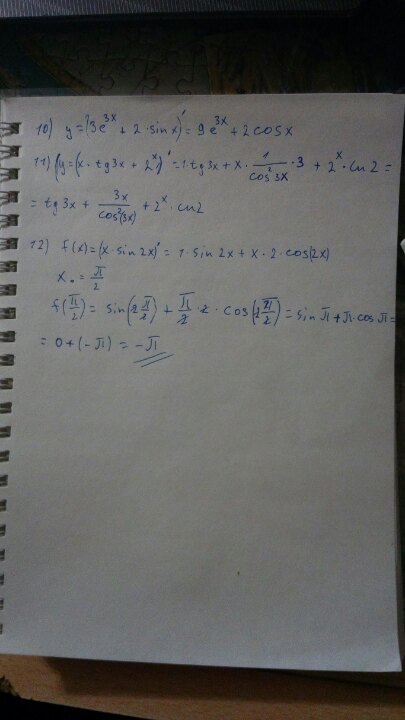 10) y=(3e^{3x} + 2·sinx)' = 9e^{3x} + 2cosx
11) (y=(x·tg3x + 2^x)' = 1·tg3x + x · \frac{1}{cos^2 3x} · 3 + 2^x · ln2 =
= tg3x + \frac{3x}{cos^2(3x)} + 2^x · ln2
12) f(x) = (x·sin2x)' = 1·sin2x + x·2·cos(2x)
x_0 = \frac{π}{2}
f(\frac{π}{2}) = sin(2\frac{π}{2}) + \frac{π}{2}·2·cos(2\frac{π}{2}) = sinπ + π·cosπ =
= 0 + (-π) = -π